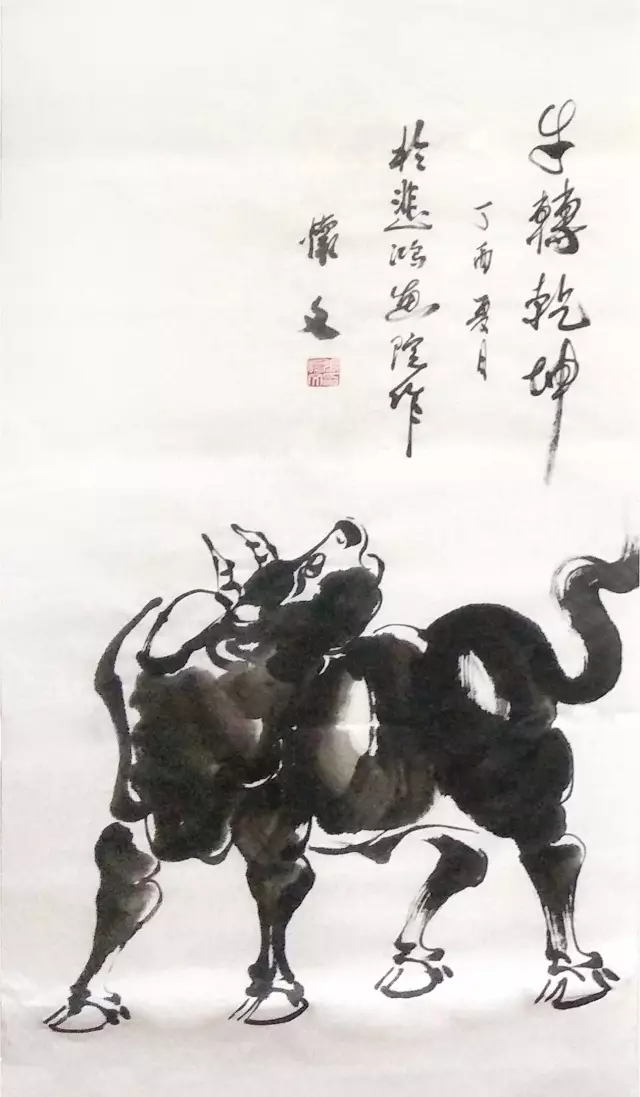 牛轉乾坤
丁酉夏月
於悲鴻畫院作
懷文